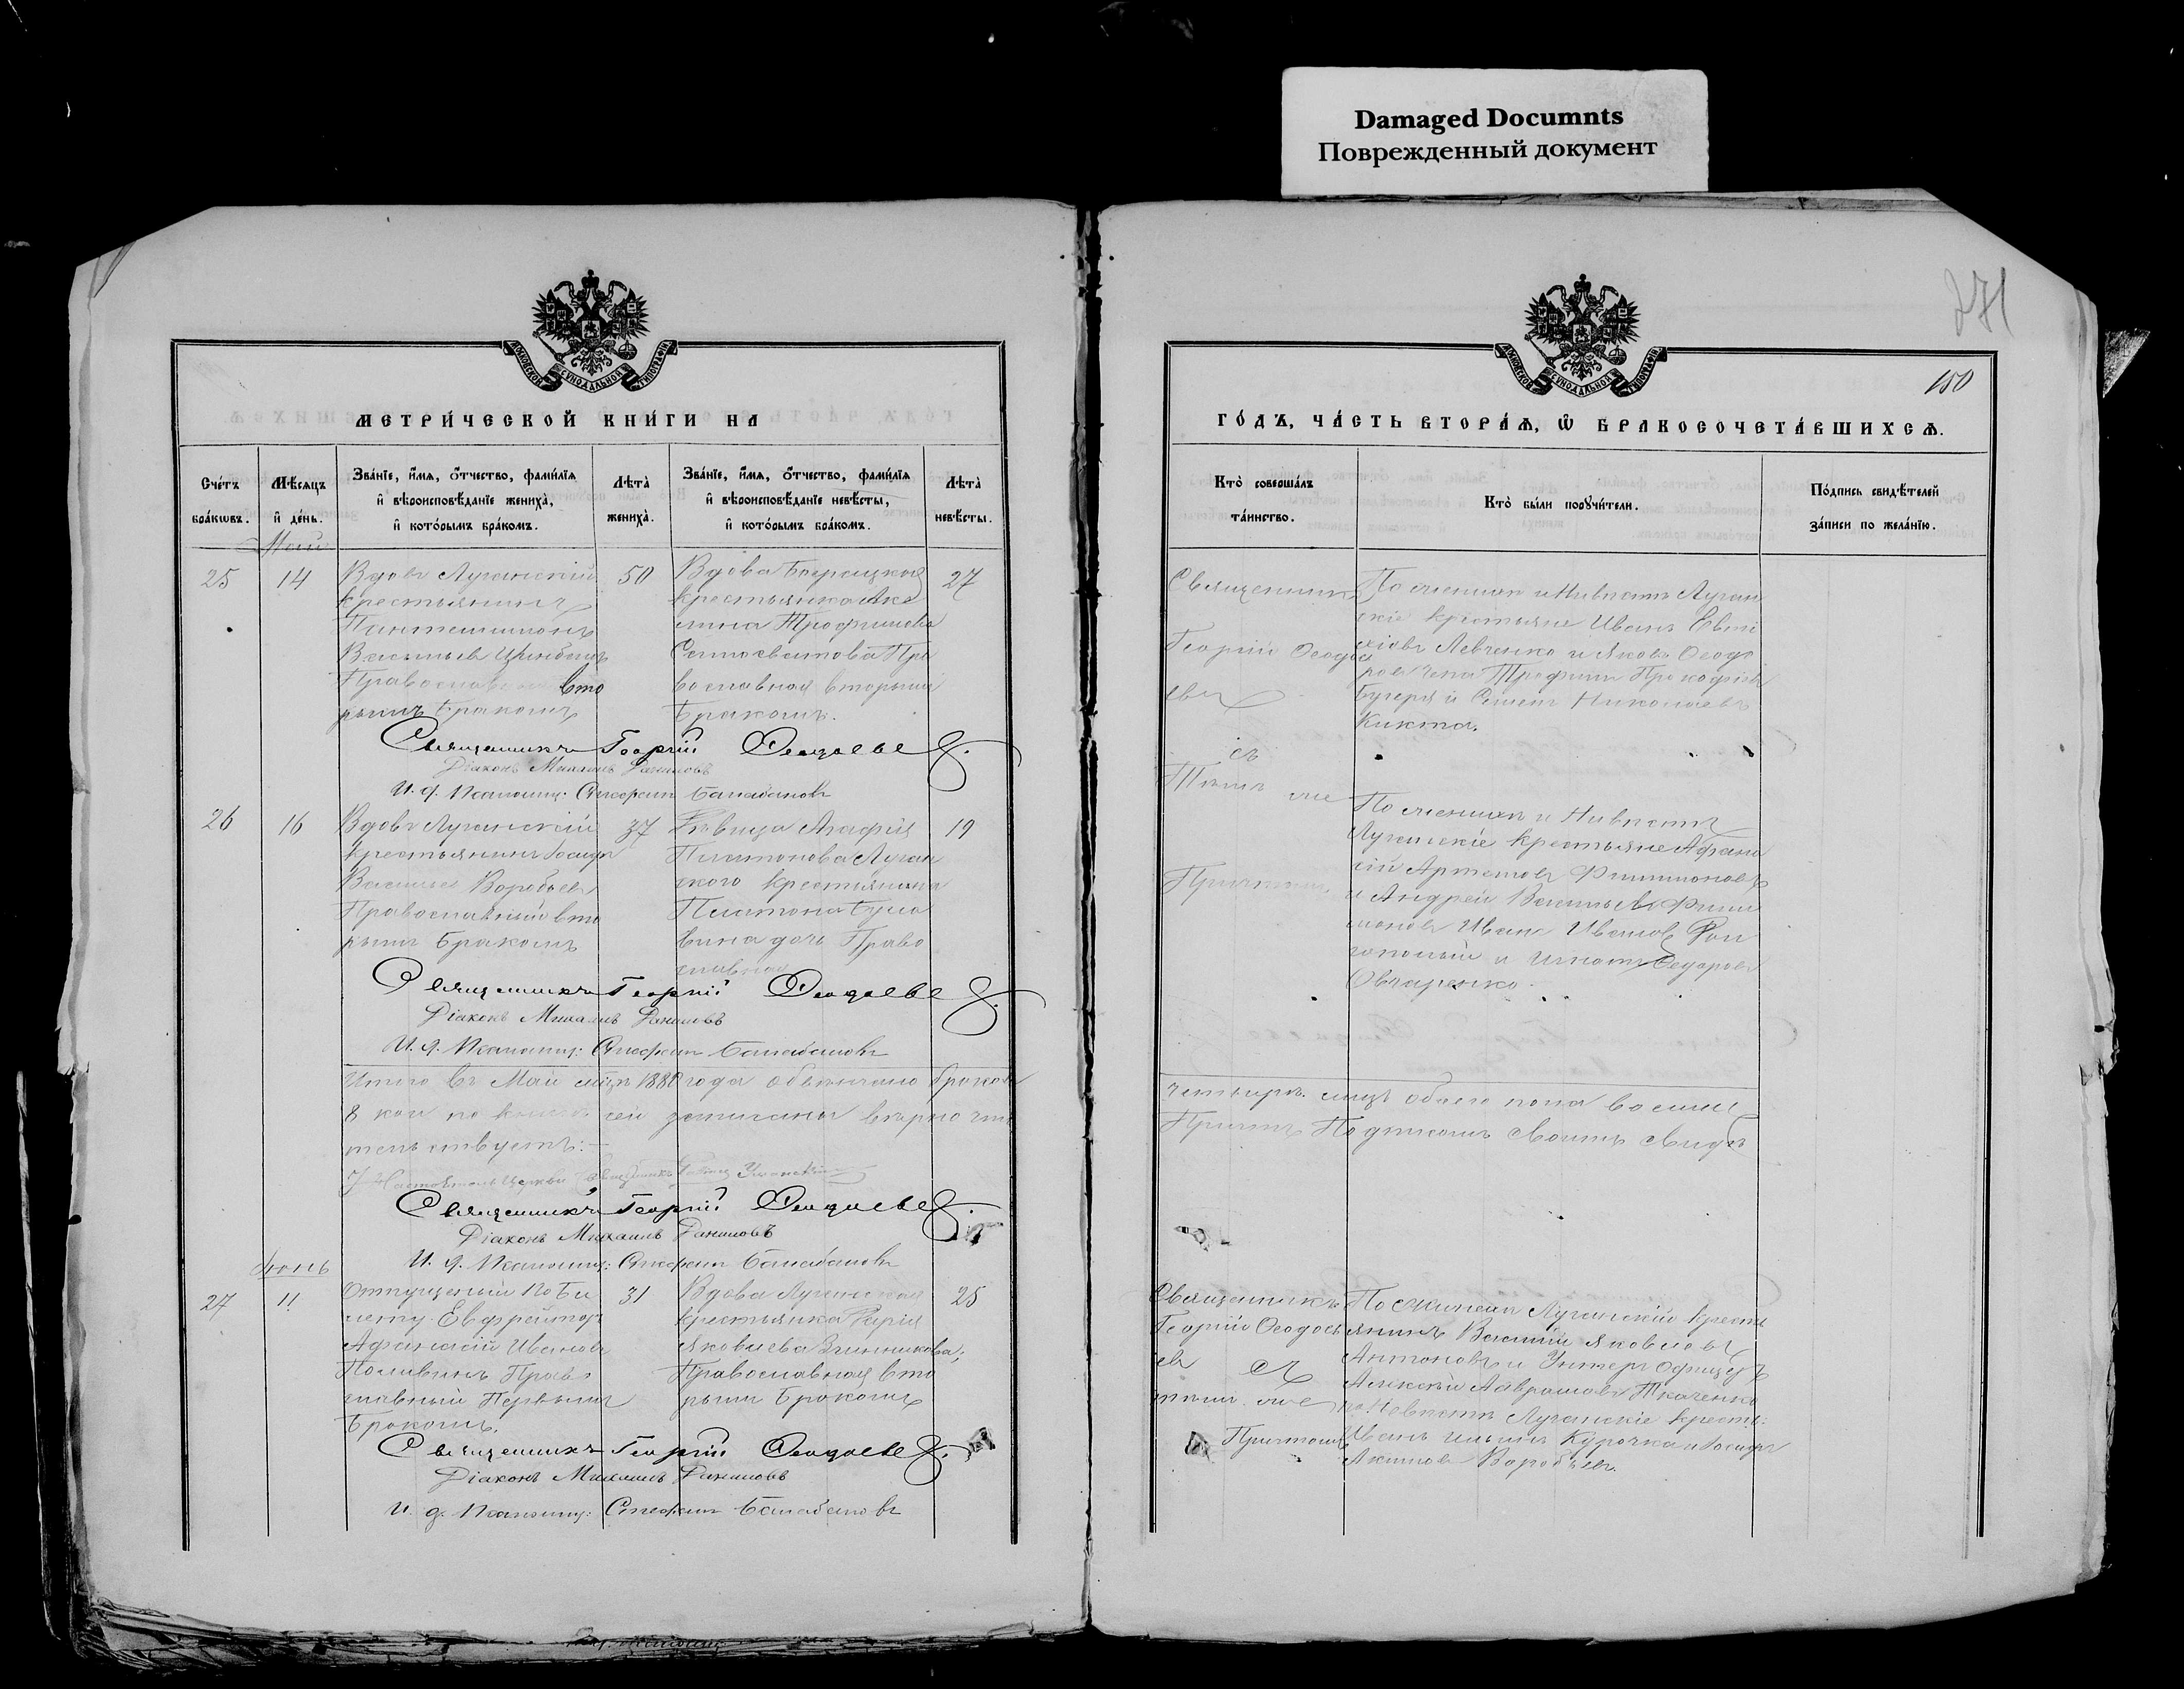 Damaged Documnts
Поврежденный документ
271
150
МОСКОВСКОЙ СѴНОДАЛЬНОЙ ТИПОГРАФІИ
МЕТРИ́ЧЕСКОЙ КНИ́ГИ НА
Сче́тъ бра́кѡвъ.
Мѣ́сяцъ и҆ де́нь.
Зва́нїе, и҆́мѧ, ѻ҆́тчество, фами́лїѧ
и҆ вѣроисповѣ́данїе жениха̀,
и҆ кото́рымъ бра́комъ.
Лѣта̀ жениха̀.
Зва́нїе, и҆́мѧ, ѻ҆́тчество, фами́лїѧ
и҆ вѣроисповѣ́данїе невѣ́сты,
и҆ кото́рымъ бра́комъ.
Лѣта̀ невѣ́сты.
Май
25
14
Вдовъ Луганскій
крестьянинъ
Пантелимонъ
Васильев
Православный вто
рымъ бракомъ
50
Вдова
крестьянка Аку
лина Трофимова
Пра
вославная вторымъ
бракомъ.
27
Священникъ Георгій Феодосьевъ
Діаконъ Михаилъ Даниловъ
И. д. Псаломщ: Стефанъ Балабановъ
26
16
Вдовъ Луганскій
крестьянинъ Іосифъ
Васильев Воробьевъ
Православный вто
рымъ бракомъ
37
Дѣвица Агафія
Платонова Луган
скаго крестьянина
Платона
дочь Право
славная
19
Священникъ Георгій Феодосьевъ
Діаконъ Михаилъ Даниловъ
И. д. Псаломщ: Стефанъ Балабановъ
Итого въ Май мѣсяц 1888 года обвѣнчано браковъ
8 кои по книгѣ сей записаны вѣрно
тельствуетъ:
Настоятель Церкви Священникъ
Священникъ Георгій Феодосьевъ
Діаконъ Михаилъ Даниловъ
И. д. Псаломщ: Стефанъ Балабановъ
Іюнь
27
11
Отпущеный по би
лету Евфрейторъ
Афанасій Ивановъ
Поливинъ Право
славный Первымъ
Бракомъ.
31
Вдова Луганская
крестьянка Дарія
Яковлева Зинникова;
Православная вто
рымъ Бракомъ
25
Священникъ Георгій Феодосьевъ
Діаконъ Михаилъ Даниловъ
И. д. Псаломщ: Стефанъ Балабановъ
ГО́ДЪ, ЧА́СТЬ ВТОРА́Ѧ, Ѡ҆ БРАКОСОЧЕТА́ВШИХСѦ.
Кто̀ соверша́лъ та́инство.
Кто̀ бы́ли порꙋчи́тели.
По́дпись свидѣ́телей за́писи по жела́нїю.
Священникъ
Георгій Феодось
евъ
съ
Тѣмъ же
Причтомъ
По женихѣ и Невѣстѣ Луган
скіе крестьяне Иванъ Евти
хіевъ Левченко и Яковъ Феодо
ровъ Трофимъ Прокофіевъ
и Николаевъ
Кикта.
По женихѣ и Невѣстѣ
Луганскіе крестьяне Афана
сій Артемовъ Филимоновъ
и Андрей Васильевъ Фили
моновъ Иванъ Ивановъ
и Игнатъ Федоровъ
Овчаренко.
четыре. лицъ обоего пола восемь
Причтъ Подписомъ своимъ свидѣ
Священникъ
Георгій Феодось
евъ съ
тѣмъ же
Причтомъ
По женихѣ Луганскій кресть
янинъ Василій Яковлевъ
Антоновъ и Унтеръ офицеръ
Алексѣй Аврамовъ Ткаченко
по Невѣстѣ Луганскіе кресть:
Иванъ Ильинъ Курочка и Іосифъ
Акимовъ Воробьевъ.